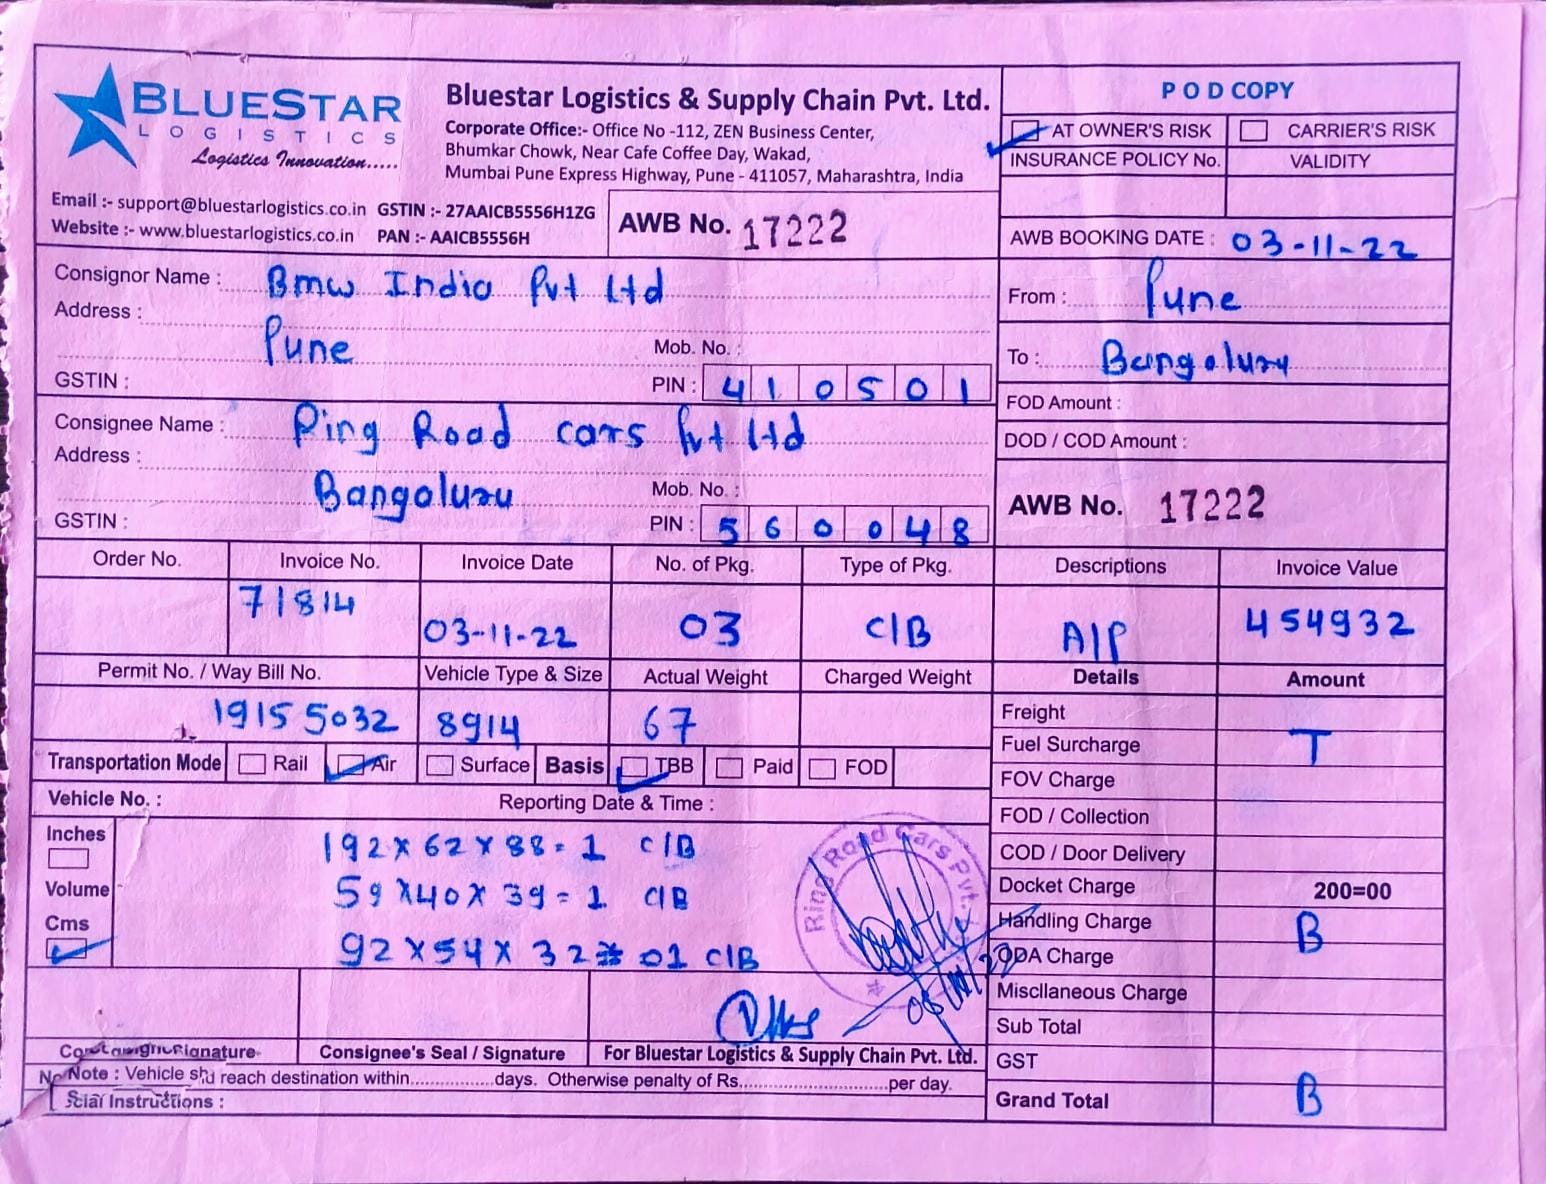 BLUESTAR
LOGISTICS
Logistics Innovation.....
Bluestar Logistics & Supply Chain Pvt. Ltd.
Corporate Office:- Office No -112, ZEN Business Center,
Bhumkar Chowk, Near Cafe Coffee Day, Wakad,
Mumbai Pune Express Highway, Pune - 411057, Maharashtra, India
Email :- support@bluestarlogistics.co.in GSTIN :- 27AAICB5556H1ZG
Website :- www.bluestarlogistics.co.in PAN :- AAICB5556H
AWB No. 17222
POD COPY
AT OWNER'S RISK CARRIER'S RISK
INSURANCE POLICY No. VALIDITY
AWB BOOKING DATE : 03-11-22
Consignor Name : Bmw India Pvt Ltd
Address :
Pune Mob. No. :
GSTIN : PIN : 410501
From : Pune
To : Bangaluru
FOD Amount :
DOD / COD Amount :
Consignee Name : Ring Road cars Pvt Ltd
Address :
Bangaluru Mob. No. :
GSTIN : PIN : 560048
AWB No. 17222
Order No. Invoice No. Invoice Date No. of Pkg. Type of Pkg. Descriptions Invoice Value
71814 03-11-22 03 C/B A/P 454932
Permit No. / Way Bill No. Vehicle Type & Size Actual Weight Charged Weight Details Amount
19155032 8914 67
Transportation Mode Rail Air Surface Basis TBB Paid FOD
Vehicle No. : Reporting Date & Time :
Inches
Volume
Cms
192 x 62 x 88 = 1 C/B
59 x 40 x 39 = 1 C/B
92 x 54 x 32 = 01 C/B
Ring Road Cars Pvt.
Freight
Fuel Surcharge T
FOV Charge
FOD / Collection
COD / Door Delivery
Docket Charge 200=00
Handling Charge B
ODA Charge
Miscllaneous Charge
Sub Total
GST
Grand Total B
Signature Consignee's Seal / Signature For Bluestar Logistics & Supply Chain Pvt. Ltd.
Note : Vehicle reach destination within...............days. Otherwise penalty of Rs...........................per day.
Instructions :